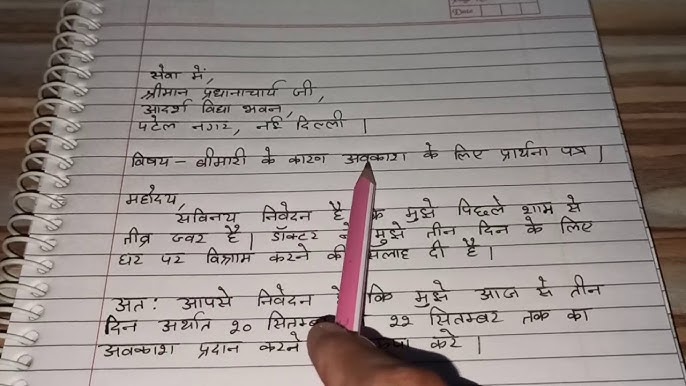 Date
सेवा में,
श्रीमान प्रधानाचार्य जी,
आदर्श विद्या भवन,
पटेल नगर, नई दिल्ली |
विषय - बीमारी के कारण अवकाश के लिए प्रार्थना पत्र |
महोदय,
सविनय निवेदन है मुझे पिछले शाम से
तीव्र ज्वर है | डॉक्टर मुझे तीन दिन के लिए
घर पर विश्राम करने की सलाह दी है |
अतः आपसे निवेदन कि मुझे आज से तीन
दिन अर्थात २० २२ सितम्बर तक का
अवकाश प्रदान करने करे |